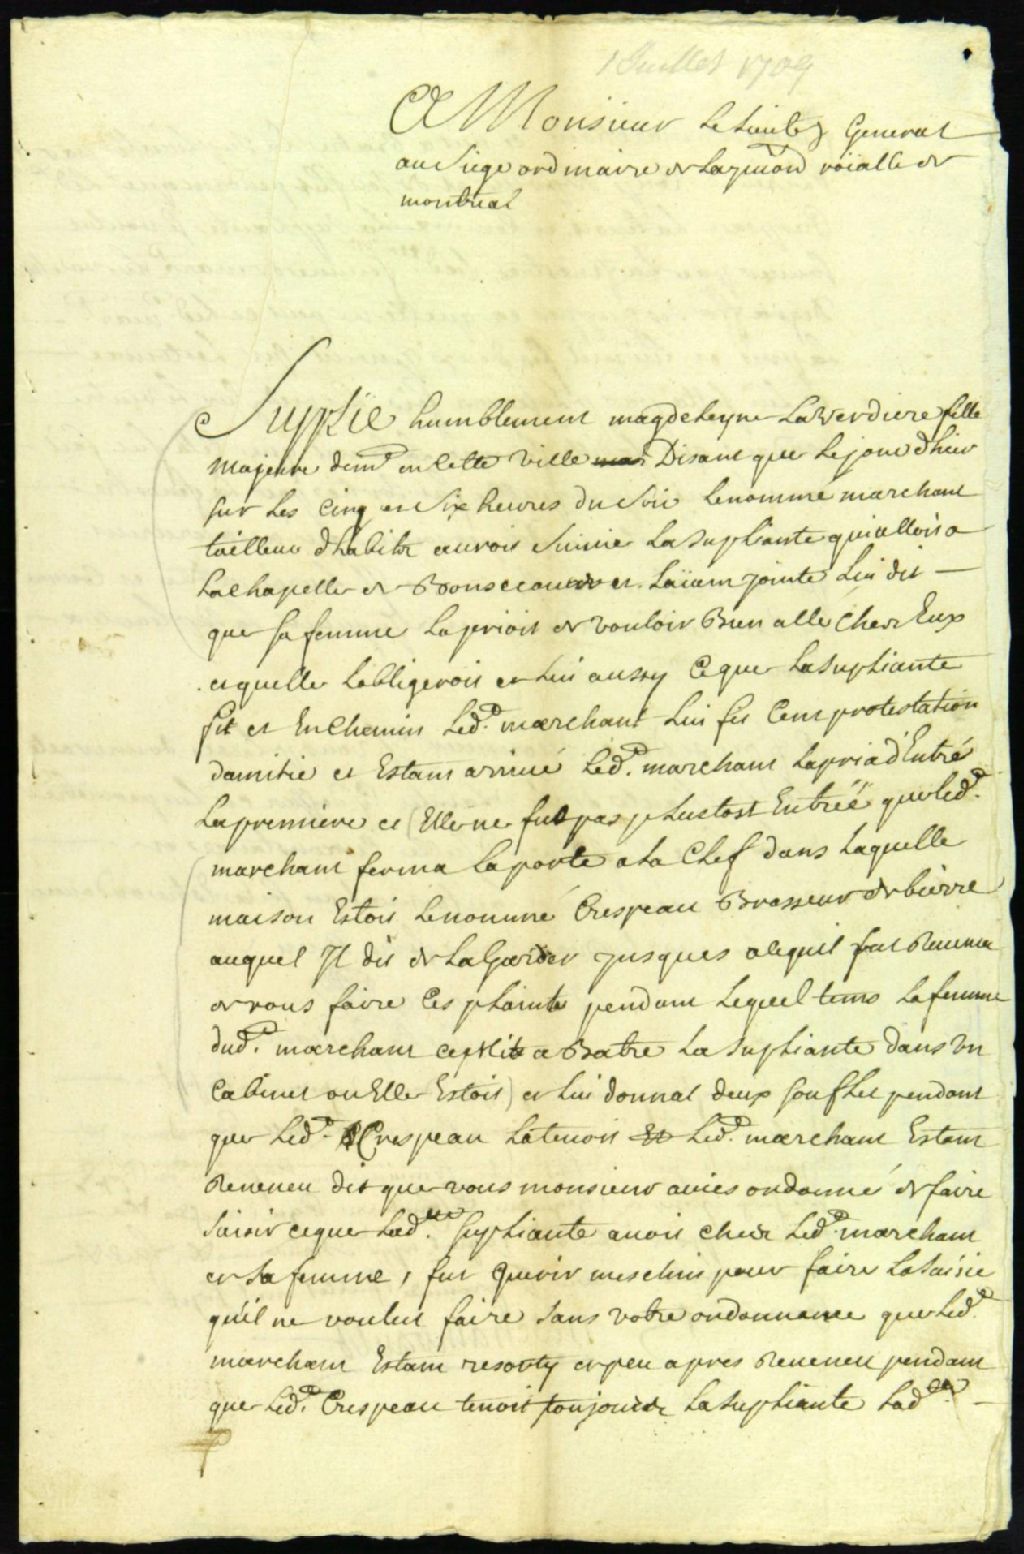 1 Juillet 1709
A Monsieur Le Lieutet General
au Siege ordinaire de La jurion roïalle de
montreal
Suplie humblement magdeleyne Laverdiere fille
Majeure demt en cette Ville Disant que Le jour d'hier
sur Les Cinq et Six heures du Soir Le nomme marchant
tailleur dhabits auroit Suivie La Supliante qui alloit a
La Chapelle de Bonsecours et Laïant jointe Lui dit
que sa femme La prioit de vouloir Bien alle Chez Eux
et quelle Lobligeroit et Lui aussy Ce que La Supliante
fit et En Chemin Led. marchant Lui fit Cent protestation
damitie et Estant arrivé Led. marchant La pria d'Entré
La premiere et (Elle ne fut pas plustost Entréé que Led.
marchant ferma La porte a La Clef dans Laquelle
maison Estoit Le nommé Crespeau Brasseur de bierre
auquel Il dit de La Garder jusques a ce quil fut Revenu
de vous faire Ces plainte pendant Lequel tems La femme
dud. marchant ce mit a Batre La Supliante dans un
Cabinet ou Elle Estoit) et Lui donnat deux souflet pendant
que Led. Crespeau La tenoit Et Led. marchant Estant
Reveneu dit que vous monsieur aviés ordonné de faire
Saisir ce que Lad. Supliante avoit chez Led. marchant
et Sa femme, fut querir meschin pour faire La Saisie
qu'il ne voulut faire Sans votre ordonnance que Led.
marchant Estant resorty et peu apres Reveneu pendant
que Led. Crespeau tenoit toujours La Supliante Lad.